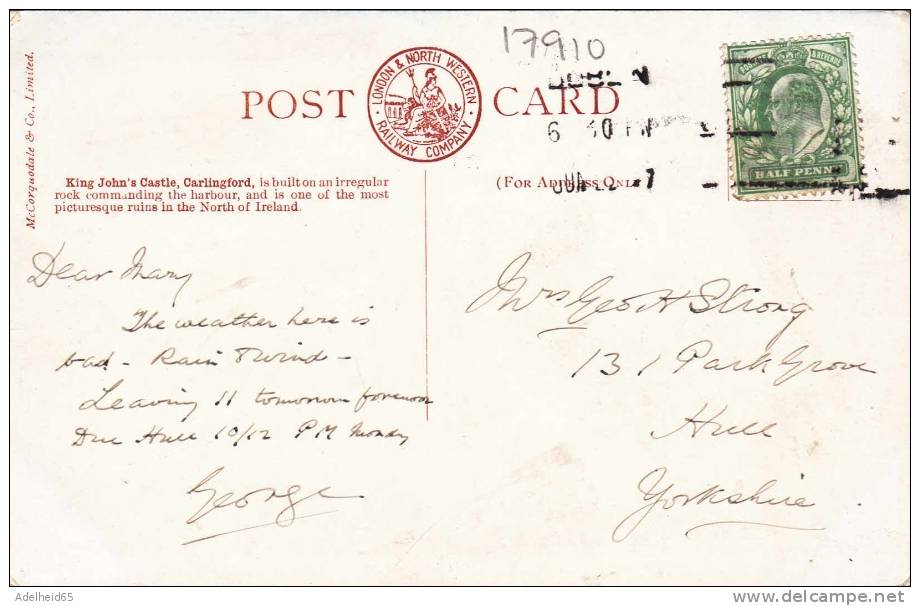 17910
DUBLIN
6 30 PM
JUL 2 7
POST CARD
LONDON & NORTH WESTERN RAILWAY COMPANY
POSTAGE & REVENUE
HALF PENNY
McCorquodale & Co., Limited.
King John's Castle, Carlingford, is built on an irregular
rock commanding the harbour, and is one of the most
picturesque ruins in the North of Ireland.
(FOR ADDRESS ONLY)
Dear Mary
The weather here is
bad - Rain & wind -
Leaving 11 tomorrow forenoon
Due Hull 10/12 PM Monday
George
Mrs Geo H Strong
131 Park Grove
Hull
Yorkshire.
Adelheid65
delcampe.net